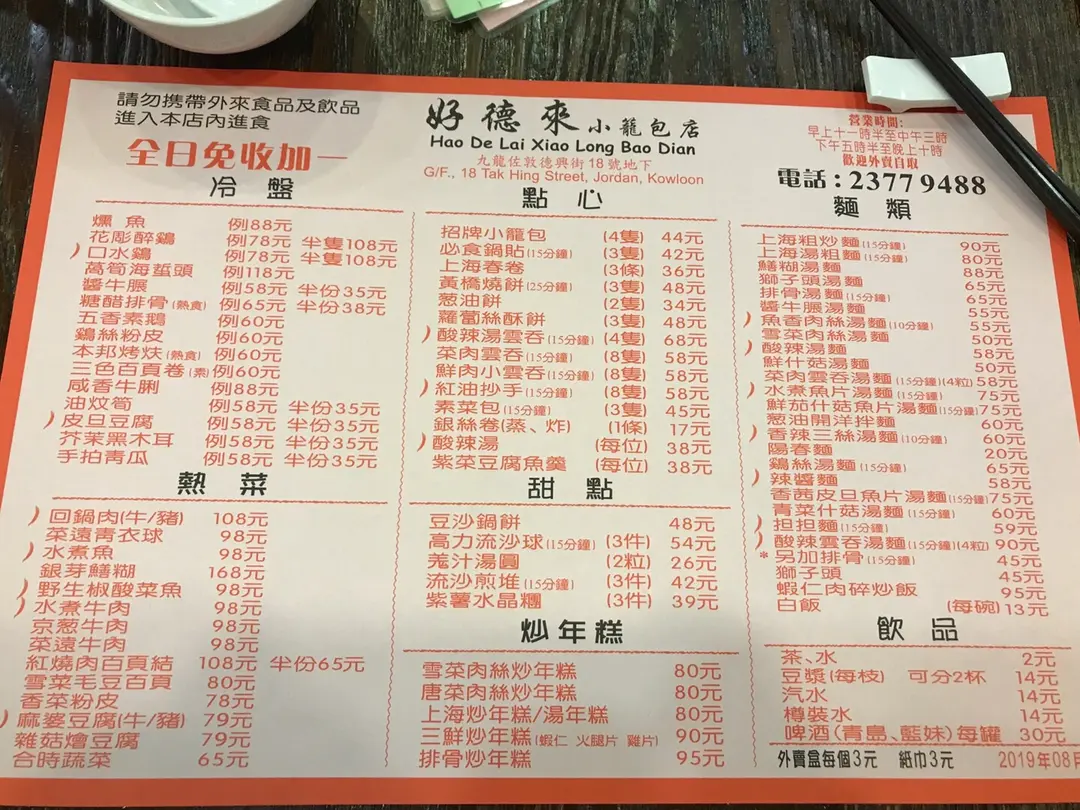 請勿攜帶外來食品及飲品
進入本店內進食
全日免收加一
好德來小籠包店
Hao De Lai Xiao Long Bao Dian
九龍佐敦德興街18號地下
G/F., 18 Tak Hing Street, Jordan, Kowloon
營業時間:
早上十一時半至中午三時
下午五時半至晚上十時
歡迎外賣自取
電話:2377 9488
冷盤
燻魚 例88元
花彫醉鷄 例78元 半隻108元
)口水鷄 例78元 半隻108元
萵筍海蜇頭 例118元
醬牛𦟌 例58元 半份35元
糖醋排骨(熱食) 例65元 半份38元
五香素鵝 例60元
鷄絲粉皮 例60元
本邦烤麩(熱食) 例60元
三色百頁卷(素) 例60元
咸香牛脷 例88元
油炆筍 例58元 半份35元
)皮旦豆腐 例58元 半份35元
芥茉黑木耳 例58元 半份35元
手拍青瓜 例58元 半份35元
熱菜
)回鍋肉(牛/豬) 108元
菜遠青衣球 98元
)水煮魚 98元
銀芽鱔糊 168元
)野生椒酸菜魚 98元
)水煮牛肉 98元
京葱牛肉 98元
菜遠牛肉 98元
紅燒肉百頁結 108元 半份65元
雪菜毛豆百頁 80元
香菜粉皮 78元
)麻婆豆腐(牛/豬) 79元
雜菇燴豆腐 79元
合時蔬菜 65元
點心
招牌小籠包 (4隻) 44元
必食鍋貼(15分鐘) (3隻) 42元
上海春卷 (3條) 36元
黃橋燒餅(25分鐘) (3隻) 48元
葱油餅 (2隻) 34元
蘿蔔絲酥餅 (3隻) 48元
)酸辣湯雲吞(15分鐘) (4隻) 68元
菜肉雲吞(15分鐘) (8隻) 58元
鮮肉小雲吞(15分鐘) (8隻) 58元
)紅油抄手(15分鐘) (8隻) 58元
素菜包(15分鐘) (3隻) 45元
銀絲卷(蒸、炸) (1條) 17元
)酸辣湯 (每位) 38元
紫菜豆腐魚羹 (每位) 38元
甜點
豆沙鍋餅 48元
高力流沙球(15分鐘) (3件) 54元
羗汁湯圓 (2粒) 26元
流沙煎堆(15分鐘) (3件) 42元
紫薯水晶糰 (3件) 39元
炒年糕
雪菜肉絲炒年糕 80元
唐菜肉絲炒年糕 80元
上海炒年糕/湯年糕 80元
三鮮炒年糕(蝦仁 火腿片 雞片) 90元
排骨炒年糕 95元
麵類
上海粗炒麵(15分鐘) 90元
上海湯粗麵(15分鐘) 80元
鱔糊湯麵 88元
獅子頭湯麵 65元
排骨湯麵(15分鐘) 65元
醬牛𦟌湯麵 55元
)魚香肉絲湯麵(10分鐘) 55元
雪菜肉絲湯麵 50元
)酸辣湯麵 58元
鮮什菇湯麵 50元
菜肉雲吞湯麵(15分鐘)(4粒) 58元
)水煮魚片湯麵(15分鐘) 75元
鮮茄什菇魚片湯麵(15分鐘) 75元
葱油開洋拌麵 60元
)香辣三絲湯麵(10分鐘) 60元
陽春麵 20元
鷄絲湯麵(15分鐘) 65元
)辣醬麵 58元
香茜皮旦魚片湯麵(15分鐘) 75元
青菜什菇湯麵(15分鐘) 60元
)担担麵(15分鐘) 59元
)酸辣雲吞湯麵(15分鐘)(4粒) 90元
*另加排骨(15分鐘) 45元
獅子頭 45元
蝦仁肉碎炒飯 95元
白飯 (每碗) 13元
飲品
茶、水 2元
豆漿(每枝) 可分2杯 14元
汽水 14元
樽裝水 14元
啤酒(青島、藍妹)每罐 30元
外賣盒每個3元 紙巾3元
2019年08月